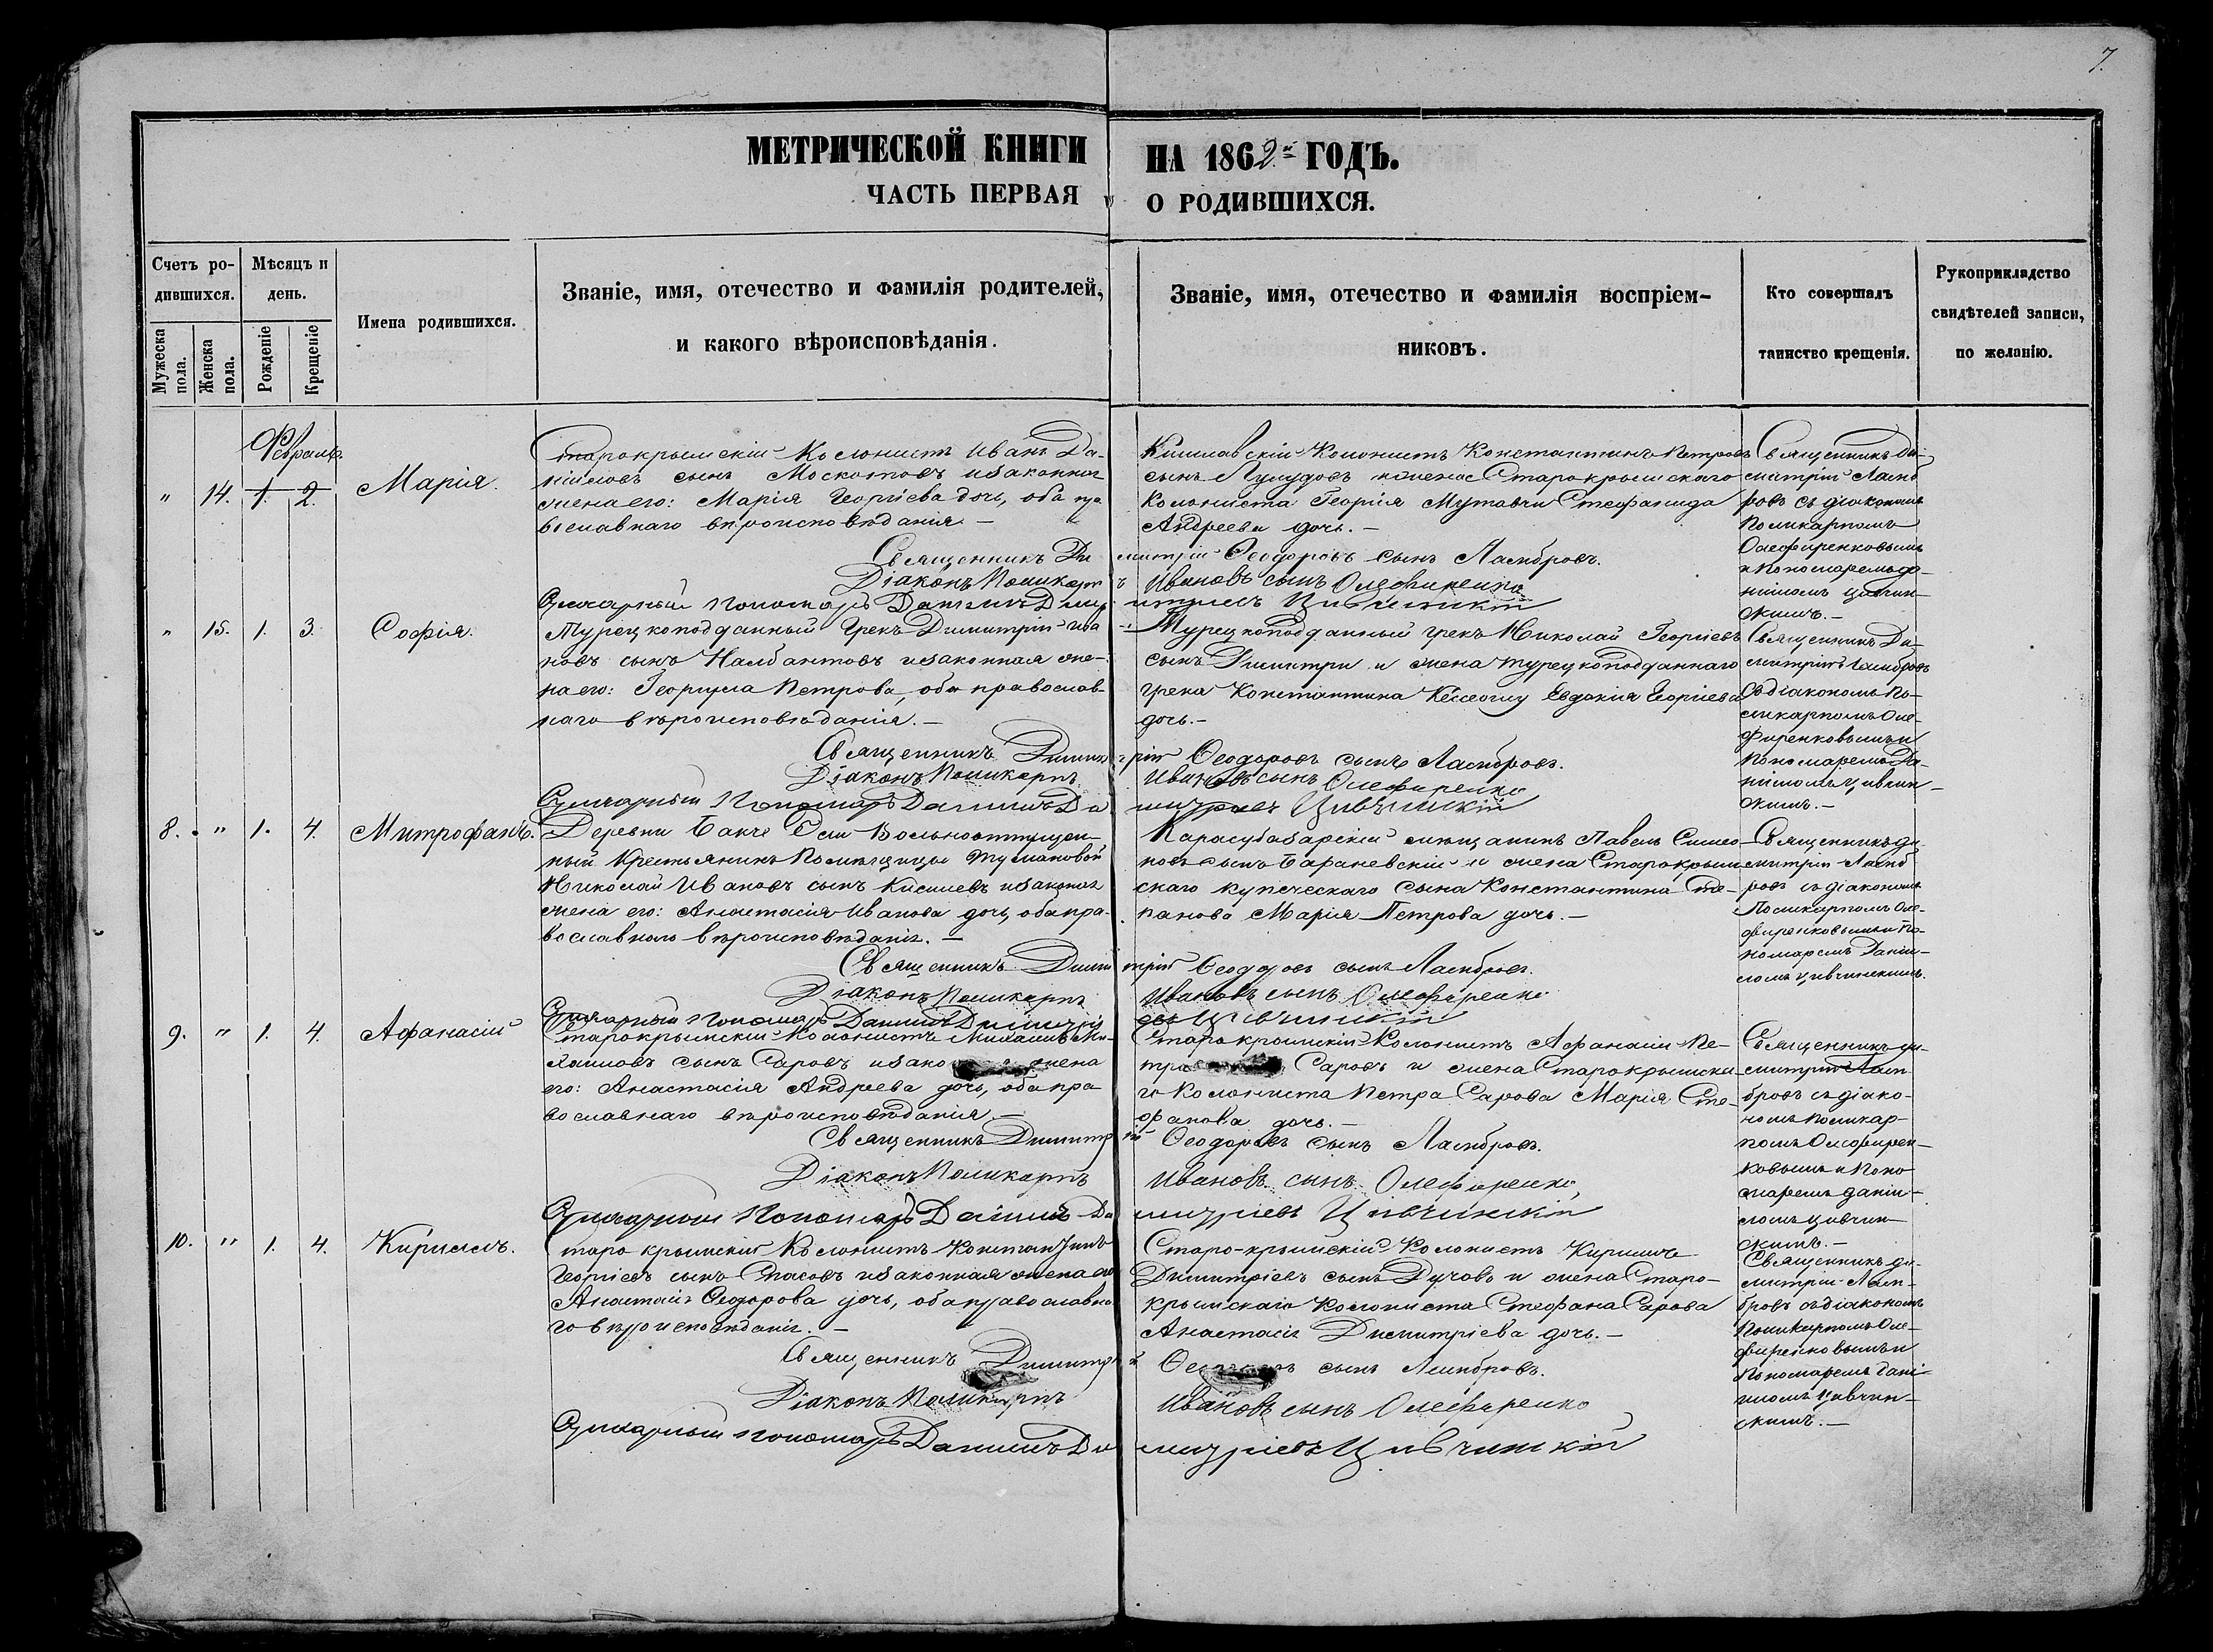 7.
МЕТРИЧЕСКОЙ КНИГИ НА 1862й ГОДЪ.
ЧАСТЬ ПЕРВАЯ О РОДИВШИХСЯ.
Счетъ ро-
дившихся.
Мужеска пола.
Женска пола.
Мѣсяцъ и
день.
Рожденіе
Крещеніе
Имена родившихся.
Званіе, имя, отечество и фамилія родителей,
и какого вѣроисповѣданія.
Званіе, имя, отечество и фамилія воспріем-
никовъ.
Кто совершалъ
таинство крещенія.
Рукоприкладство
свидѣтелей записи,
по желанію.
Февраль.
" 14. 1. 2. Марія.
Старокрымскій Колонистъ Иванъ Да-
ніиловъ сынъ Москотовъ и законная
жена его: Марія Георгіева дочь, оба пра
вославнаго вѣроисповѣданія. —
Кишлавскій Колонистъ Константинъ Петровъ
сынъ Лулудовъ и жена Старокрымскаго
Колониста Георгія Мутавчи Стефанида
Андреева дочь. —
Священникъ Ди-
митрій Ламб
ровъ съ діакономъ
Поликарпомъ
Олефиренковымъ
и Пономаремъ Да-
ніиломъ Цивчин-
скимъ. —
Священникъ Димитрій Ѳеодоровъ сынъ Ламбровъ.
Діаконъ Поликарпъ Ивановъ сынъ Олефиренко
Пономарь Даніилъ Димитріевъ Цивчинскій
" 15. 1. 3. Софія.
Турецкоподданный Грекъ Димитрій Ива
новъ сынъ Налбантовъ и законная же-
на его: Георгула Петрова, оба православ-
наго вѣроисповѣданія. —
Турецкоподданный грекъ Николай Георгіевъ
сынъ Димитри и жена турецкоподданнаго
грека Константина Евдокія Георгіева
дочь. —
Священникъ Ди-
митрій Ламбровъ
съ діакономъ По-
ликарпомъ Оле-
фиренковымъ и
Пономаремъ Да-
ніиломъ Цивчин-
скимъ. —
Священникъ Димитрій Ѳеодоровъ сынъ Ламбровъ.
Діаконъ Поликарпъ Ивановъ сынъ Олефиренко
Пономарь Даніилъ Димитріевъ Цивчинскій
8. " 1. 4. Митрофанъ.
Деревни Бакче Эли Вольноотпущен-
ный Крестьянинъ Помѣщицы Тумановой
Николай Ивановъ сынъ Киселевъ и законная
жена его: Анастасія Иванова дочь, оба пра-
вославнаго вѣроисповѣданія. —
Карасубазарскій мѣщанинъ Павелъ Симео-
новъ сынъ Барановскій и жена Старокрым
скаго купеческаго сына Константина Сте-
панова Марія Петрова дочь. —
Священникъ Ди
митрій Ламб
ровъ съ діакономъ
Поликарпомъ Оле-
фиренковымъ и По-
номаремъ Даніи-
ломъ Цивчинскимъ.
Священникъ Димитрій Ѳеодоровъ сынъ Ламбровъ.
Діаконъ Поликарпъ Ивановъ сынъ Олефиренко
Пономарь Даніилъ Димитріевъ Цивчинскій
9. " 1. 4. Афанасій
Старокрымскій Колонистъ Михаилъ Ми-
хаиловъ сынъ Саровъ и законная жена
его: Анастасія Андреева дочь, оба пра
вославнаго вѣроисповѣданія. —
Старокрымскій Колонистъ Афанасій Пе-
тро Саровъ и жена Старокрымска-
го Колониста Петра Сарова Марія Сте-
фанова дочь. —
Священникъ Ди-
митрій Лам
бровъ съ діако-
номъ Поликар-
помъ Олефирен-
ковымъ и Поно
маремъ Даніи-
ломъ Цивчин-
скимъ. —
Священникъ Димитрій Ѳеодоровъ сынъ Ламбровъ.
Діаконъ Поликарпъ Ивановъ сынъ Олефиренко,
Пономарь Даніилъ Димитріевъ Цивчинскій
10. " 1. 4. Кириллъ.
Старо крымскій Колонистъ Константинъ
Георгіевъ сынъ Спасовъ и законная жена его
Анастасія Ѳеодорова дочь, оба православна
го вѣроисповѣданія. —
Старо-крымскій Колонистъ Кириллъ
Димитріевъ сынъ Дучовъ и жена Старо-
крымскаго Колониста Стефана Сарова
Анастасія Димитріева дочь. —
Священникъ Ди-
митрій Лам-
бровъ съ діакономъ
Поликарпомъ Оле-
фиренковымъ и
Пономаремъ Дані
иломъ Цивчин-
скимъ. —
Священникъ Димитрій Ѳеодоровъ сынъ Ламбровъ.
Діаконъ Поликарпъ Ивановъ сынъ Олефиренко
Пономарь Даніилъ Димитріевъ Цивчинскій